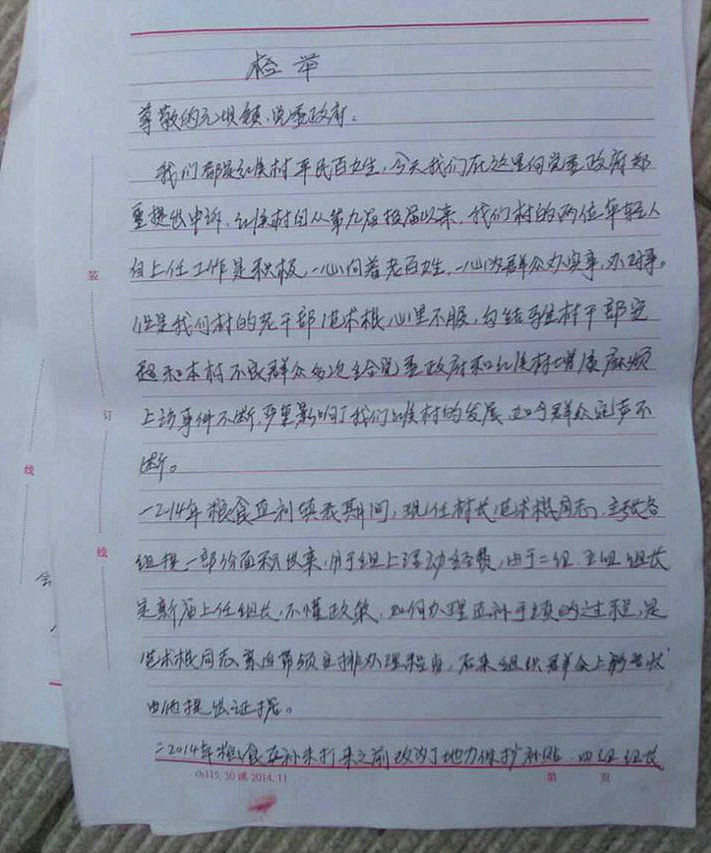 检举
尊敬的元坝镇、党委政府。
我们都是红侯村平民百姓,今天我们在这里向党委政府郑
重提出申诉,红侯村自从第九届换届以来,我们村的两位年轻人
自上任工作是积极,一心向着老百姓,一心为群众办实事,办好事。
但是我们村的老干部范术根心里不服,勾结 村干部
和本村不良群众多次给党委政府和红侯村增质麻烦
上访事件不断,严重影响了我们红侯村的发展 群众怨声不
断。
一2014年粮食直补填表期间,现任村长范术根同志,主张各
组提一部分面积出来,用于组上活动经费,由于二组 组长
是新届上任组长,不懂政策,如何办理直补手续的过程,是
范术根同志亲自带领安排办理 ,后来组织群众上访告状
由他提出证据。
二2014年粮食直补未打来之前改为了地力保护补贴 四组组长
ch115.30 2014.11
第 页
装
订
线
线
会